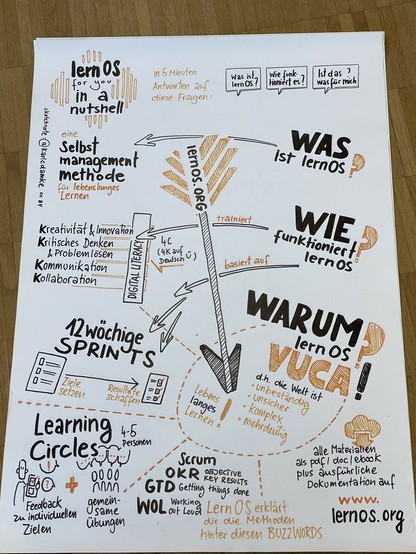 lernOS
for you
in a
nutshell
in 5 Minuten
Antworten auf
diese Fragen:
Was ist
lernOS?
Wie funk-
tioniert es?
Ist das
was für mich?
eine
Selbst
management
methode
für lebenslanges
Lernen
WAS
ist lernOS?
lernOS.ORG
trainiert
WIE
funktioniert
lernOS?
basiert auf
Kreativität & Innovation
Kritisches Denken
& Problemlösen
Kommunikation
Kollaboration
DIGITAL LITERACY
4C
(4K auf
Deutsch)
WARUM
lernOS?
VUCA!
d.h. die Welt ist
unbeständig
unsicher
komplex
mehrdeutig
12wöchige
SPRINTS
Ziele
setzen
Resultate
schaffen
Lebens
langes
Lernen!
Learning
Circles
4-5
Personen
Feedback
zu individuellen
Zielen
+
gemein-
same
Übungen
Scrum
OKR OBJECTIVE
KEY RESULTS
GTD Getting things done
WOL Working
out Loud
LernOS erklärt
dir die Methoden
hinter diesen BUZZWORDS
alle Materialien
als pdf/doc/ebook
plus ausführliche
Dokumentation auf
www.
lernos.org